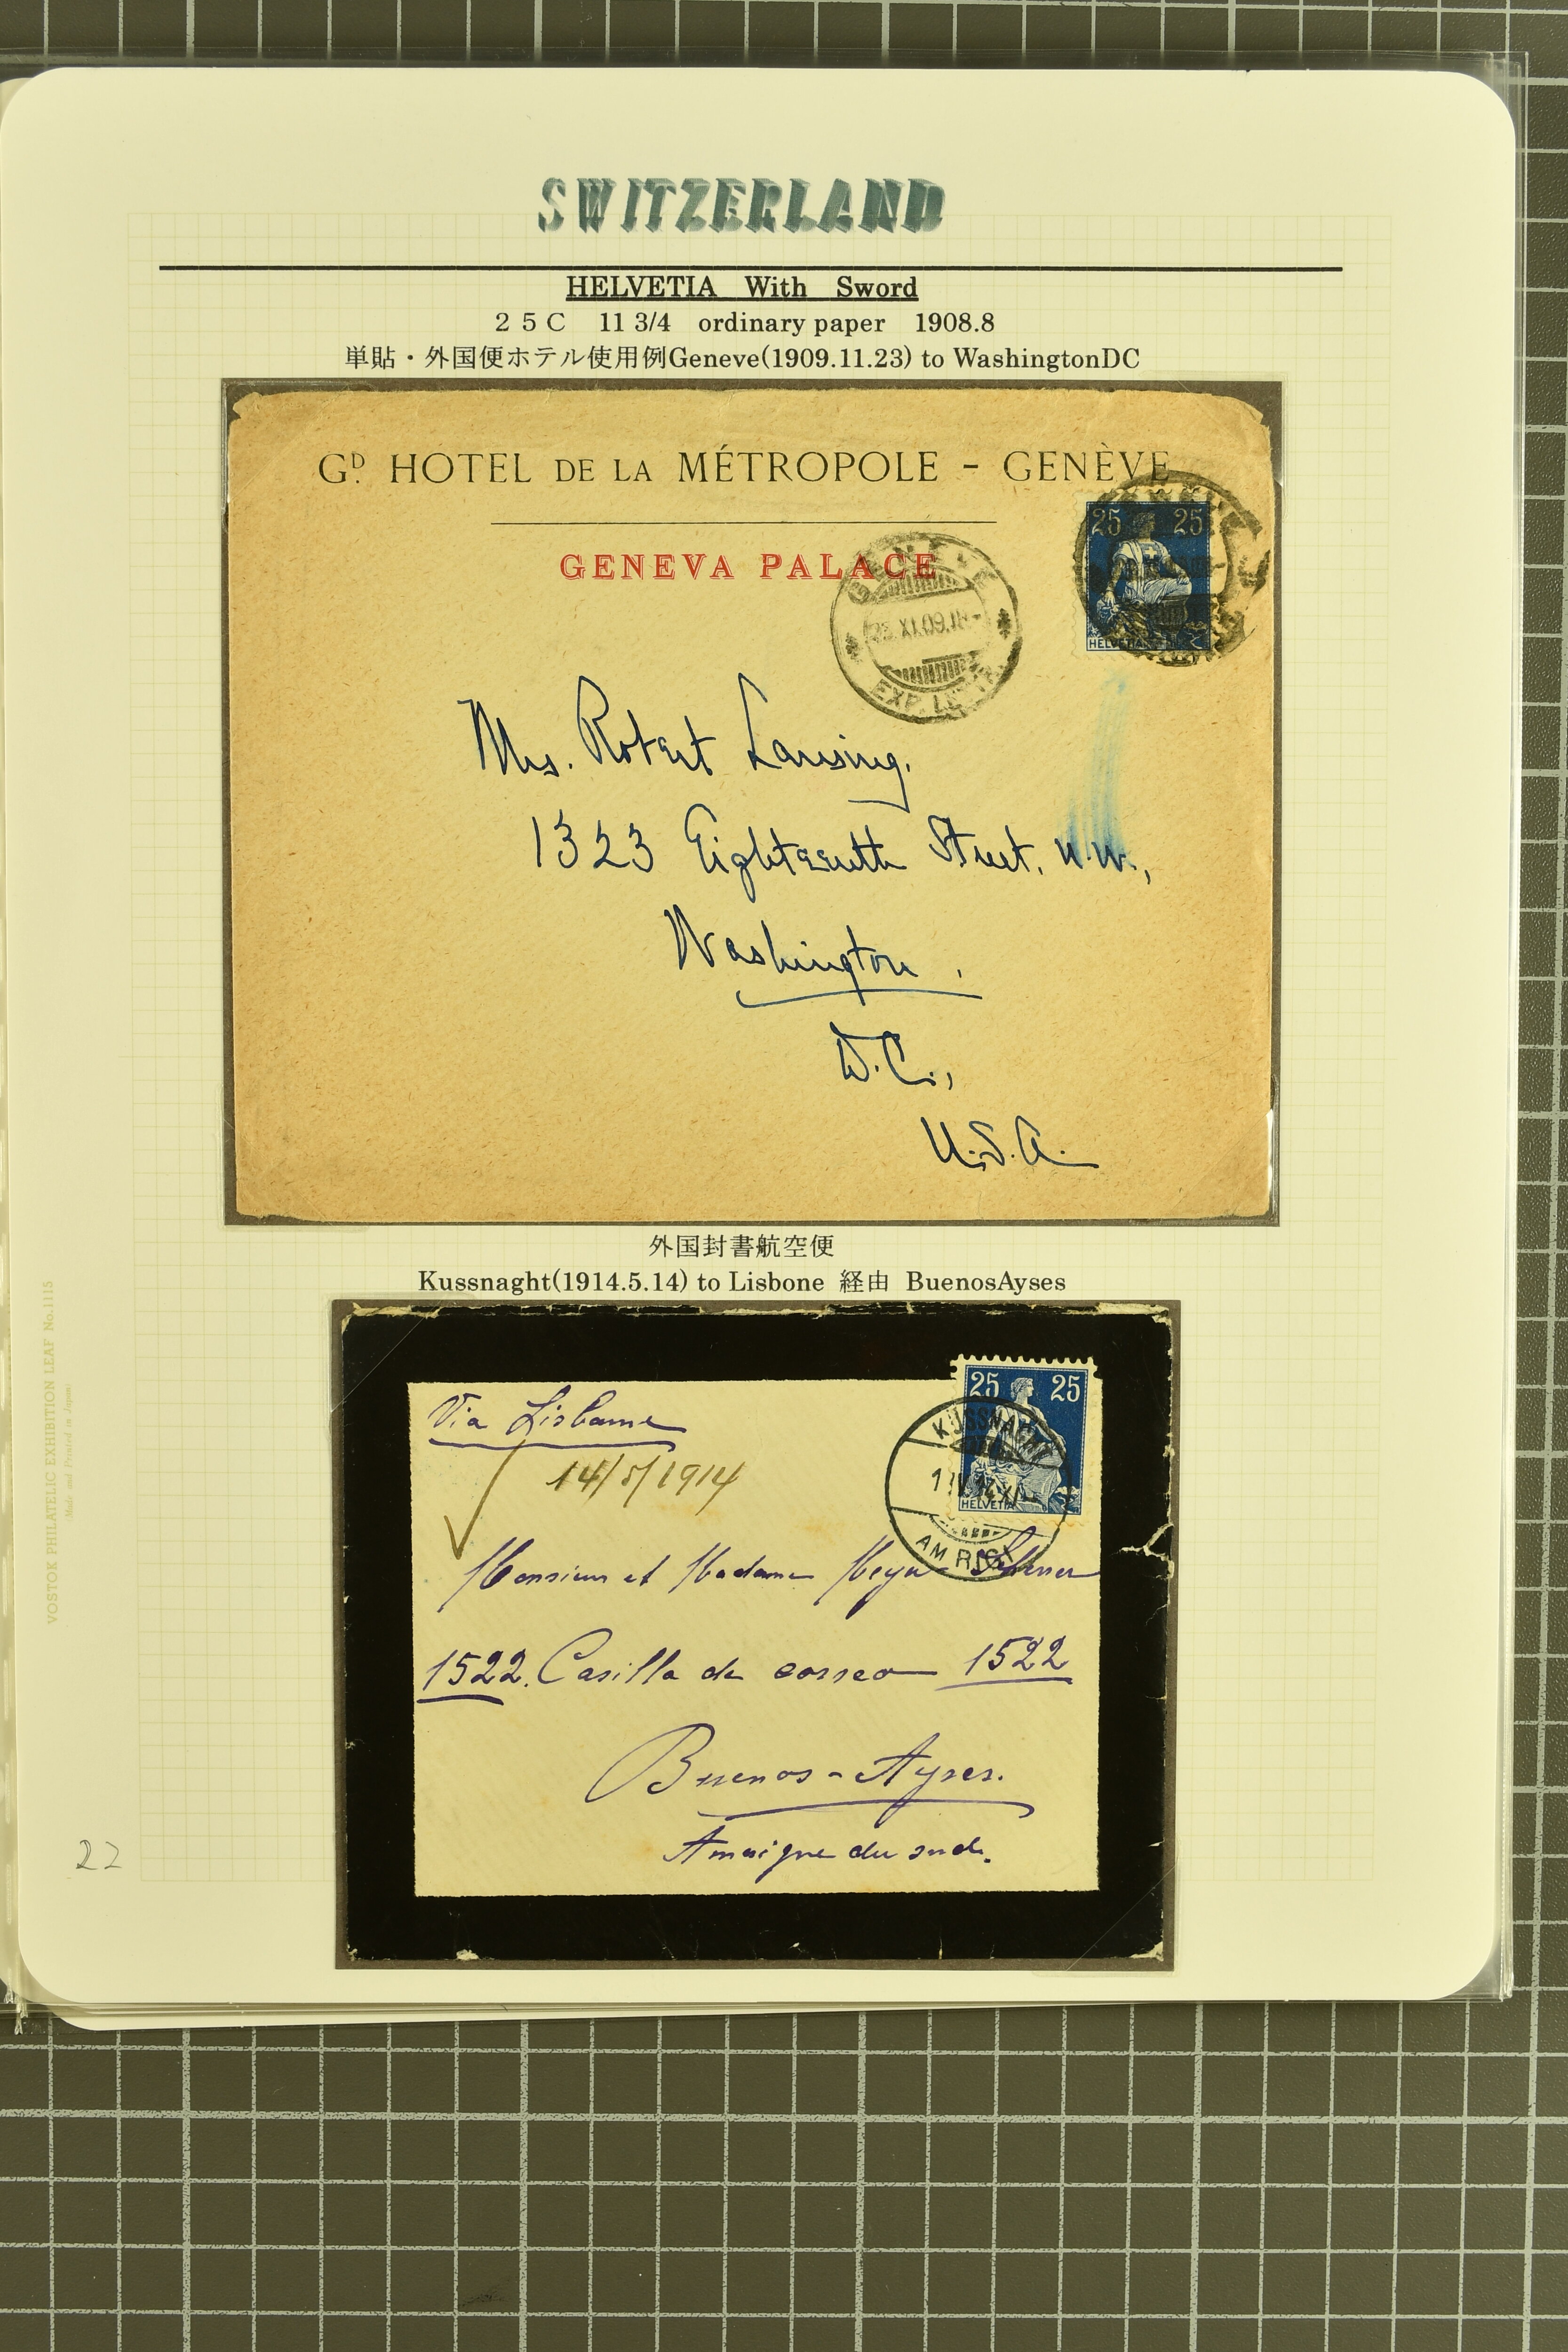 SWITZERLAND
HELVETIA With Sword
２５Ｃ 11 3/4 ordinary paper 1908.8
単貼・外国便ホテル使用例Geneve(1909.11.23) to WashingtonDC
Gᴰ. HOTEL DE LA MÉTROPOLE - GENÈVE
GENEVA PALACE
25 25
HELVETIA
XI.09.18-
EXP. LET
Mrs. Robert Lansing.
1323 Eighteenth Street. N.W.,
Washington.
D.C.,
U.S.A.
外国封書航空便
Kussnaght(1914.5.14) to Lisbone 経由 BuenosAyses
Via Lisbonne
14/5/1914
25 25
HELVETIA
KÜSSNACHT
AM RIGI
Monsieur et Madame Meyer
1522. Casilla de correo 1522
Buenos-Ayres.
Amerique du sud.
VOSTOK PHILATELIC EXHIBITION LEAF No.1115
Made and Printed in Japan
22